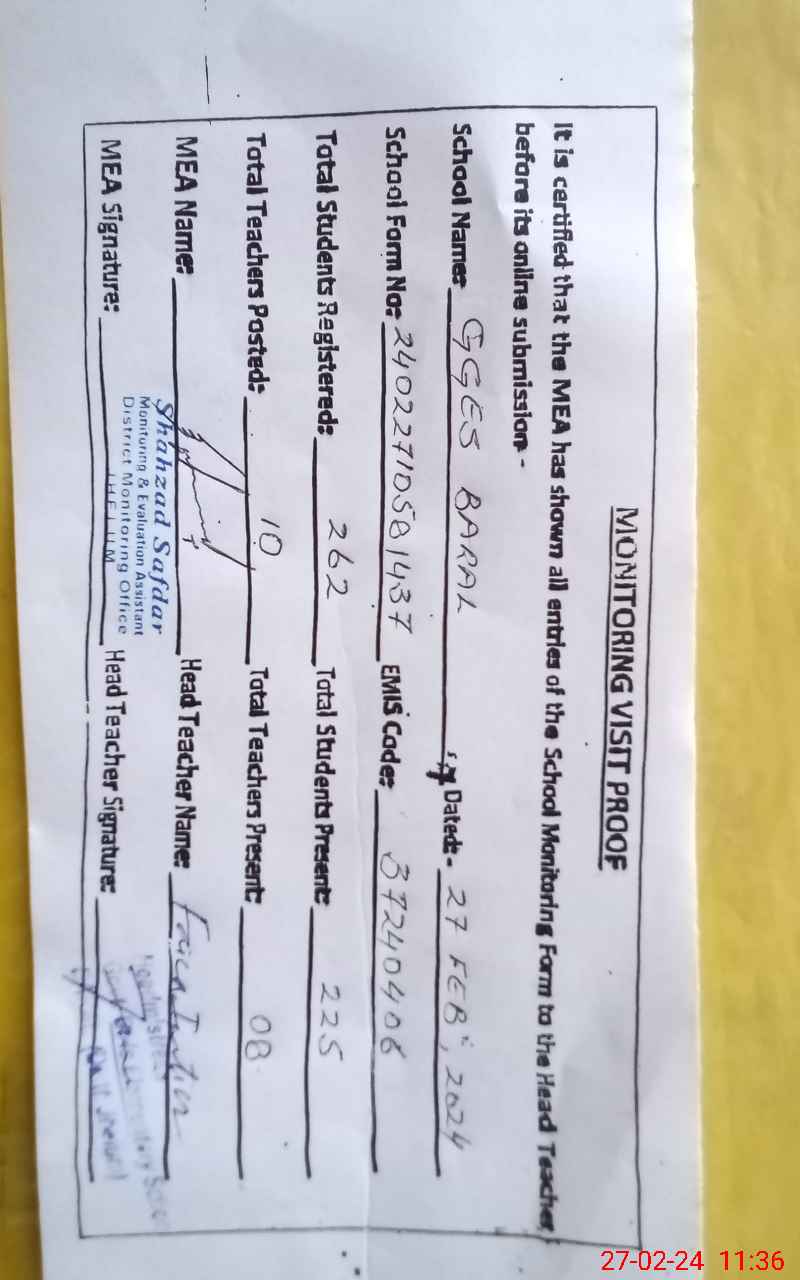 MONITORING VISIT PROOF
It is certified that the MEA has shown all entries of the School Monitoring Form to the Head Teacher
before its online submission -
School Name: GGES BARAL Dated:- 27 FEB, 2024
School Form No: 24022710581437 EMIS Code: 37240406
Total Students Registered: 262 Total Students Present: 225
Total Teachers Posted: 10 Total Teachers Present: 08
MEA Name: Head Teacher Name:
Shahzad Safdar
Monitoring & Evaluation Assistant
District Monitoring Office
JHELUM
MEA Signature: Head Teacher Signature:
27-02-24 11:36